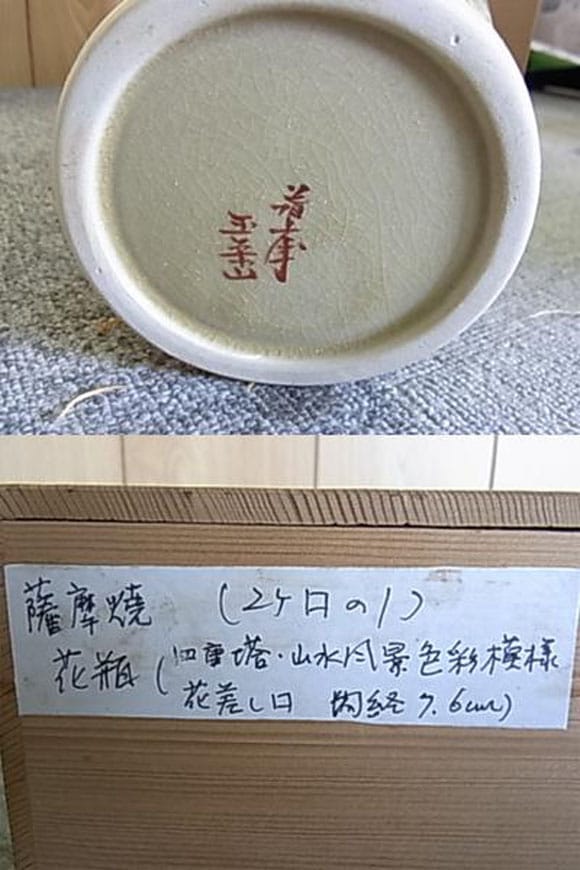 薩摩焼 (2ケ口の1)
花瓶 (四重塔・山水風景色彩模様
花差し口 内経7.6cm)